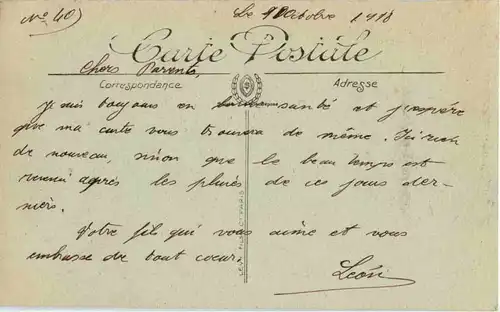 No 40
Le 11 Octobre 1918
Carte Postale
Chers Parents,
Correspondance
Adresse
Je suis toujours en santé et j'espère
que ma carte vous trouvera de même. Ici rien
de nouveau, sinon que le beau temps est
revenu après les pluies de ces jours der-
niers.
Votre fils qui vous aime et vous
embrasse de tout coeur.
Léon